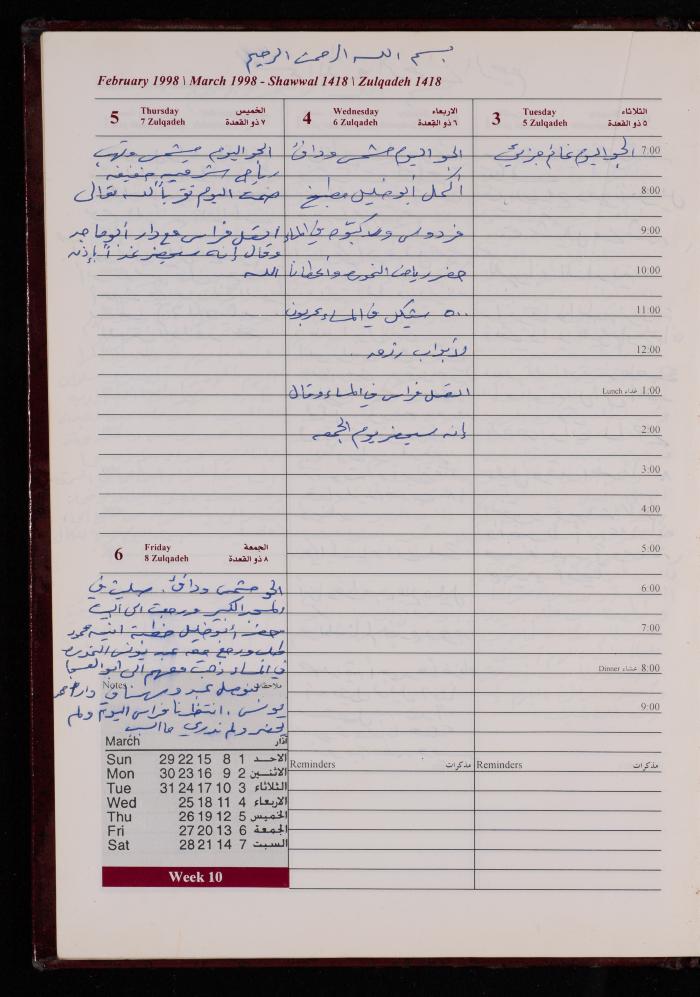 بسم الله الرحمن الرحيم
February 1998 \ March 1998 - Shawwal 1418 \ Zulqadeh 1418
3 Tuesday الثلاثاء
5 Zulqadeh ٥ ذو القعدة
الجو اليوم غائم جزئي
7:00
8:00
9:00
10:00
11:00
12:00
Lunch غداء 1:00
2:00
3:00
4:00
5:00
6:00
7:00
Dinner عشاء 8:00
9:00
Reminders مذكرات
4 Wednesday الاربعاء
6 Zulqadeh ٦ ذو القعدة
الجو اليوم مشمس ودافئ
أكمل أبو خليل مطبخ
فردوس في الماء
حضر رياض النموره وأعطانا
٥٠٠ شيكل في المساء عربون
لأبواب
اتصل فراس في المساء وقال
إنه سيحضر يوم الجمعه
Reminders مذكرات
5 Thursday الخميس
7 Zulqadeh ٧ ذو القعدة
الجو اليوم مشمس وتهب
رياح شرقيه خفيفه
صمت اليوم تقرباً لله تعالى
اتصل فراس مع دار أبو ماجد
وقال إنه سيحضر غداً بإذن
الله
6 Friday الجمعة
8 Zulqadeh ٨ ذو القعدة
الجو مشمس ودافئ. صليت في
المسجد الكبير ورجعت الى البيت
حضر أبو خليل خطبة ابنه محمود
ورجع معه عبد يونس النموره
في المساء ذهبت معهم الى ابو
Notes ملاحظات
عبد دار
يونس. انتظرنا فراس اليوم ولم
يحضر ولم ندري ما السبب
March آذار
Sun 29 22 15 8 1 الاحد
Mon 30 23 16 9 2 الاثنين
Tue 31 24 17 10 3 الثلاثاء
Wed 25 18 11 4 الاربعاء
Thu 26 19 12 5 الخميس
Fri 27 20 13 6 الجمعة
Sat 28 21 14 7 السبت
Week 10